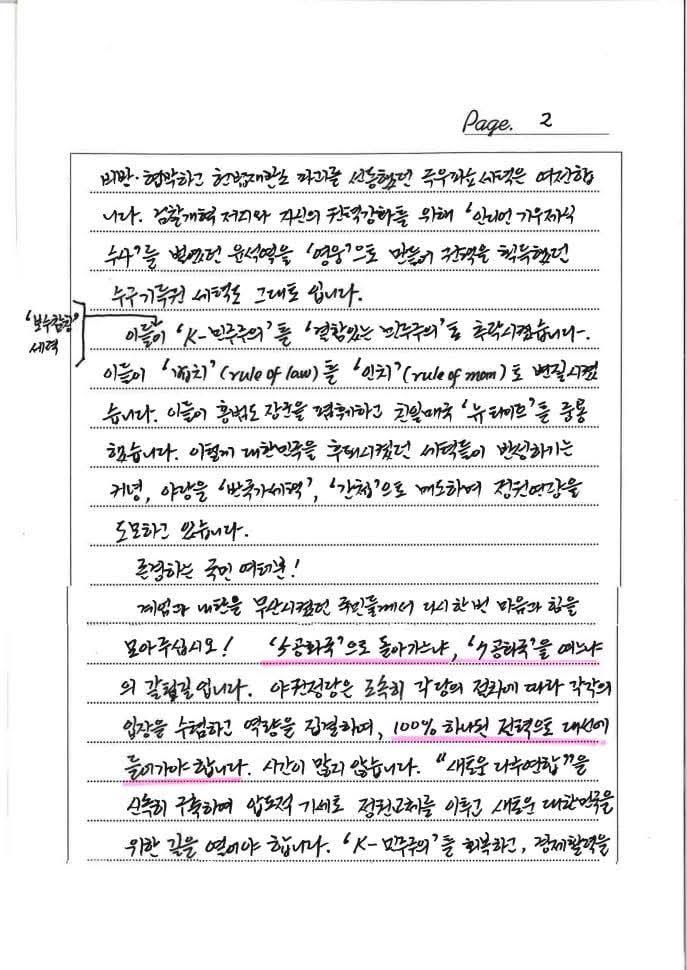 Page. 2
비반·협박하고 헌법재판소 파괴를 선동했던 극우파쇼세력은 여전합
니다. 검찰개혁 저지와 자신의 권력강화를 위해 '인디언 기우제식
수사'를 벌였던 윤석열을 '영웅'으로 만들어 권력을 획득했던
수구기득권 세력도 그대로입니다.
'보수참칭' 세력
이들이 'K-민주주의'를 '결함있는 민주주의'로 추락시켰습니다.
이들이 '법치'(rule of law)를 '인치'(rule of man)로 변질시켰
습니다. 이들이 홍범도 장군을 폄훼하고 친일매국 '뉴라이트'를 중용
했습니다. 이렇게 대한민국을 후퇴시켰던 세력들이 반성하기는
커녕, 야당을 '반국가세력', '간첩'으로 매도하며 정권연장을
도모하고 있습니다.
존경하는 국민 여러분!
계엄과 내란을 무산시켰던 국민들께서 다시 한 번 마음과 힘을
모아주십시오! '5공화국'으로 돌아가느냐, '7공화국'을 여느냐
의 갈림길입니다. 야권정당은 조속히 각당의 절차에 따라 각각의
입장을 수렴하고 역량을 집결하며, 100% 하나된 전력으로 대선에
들어가야 합니다. 시간이 많지 않습니다. "새로운 다수연합"을
신속히 구축하며 압도적 기세로 정권교체를 이루고 새로운 대한민국을
위한 길을 열어야 합니다. 'K-민주주의'를 회복하고, 경제활력을